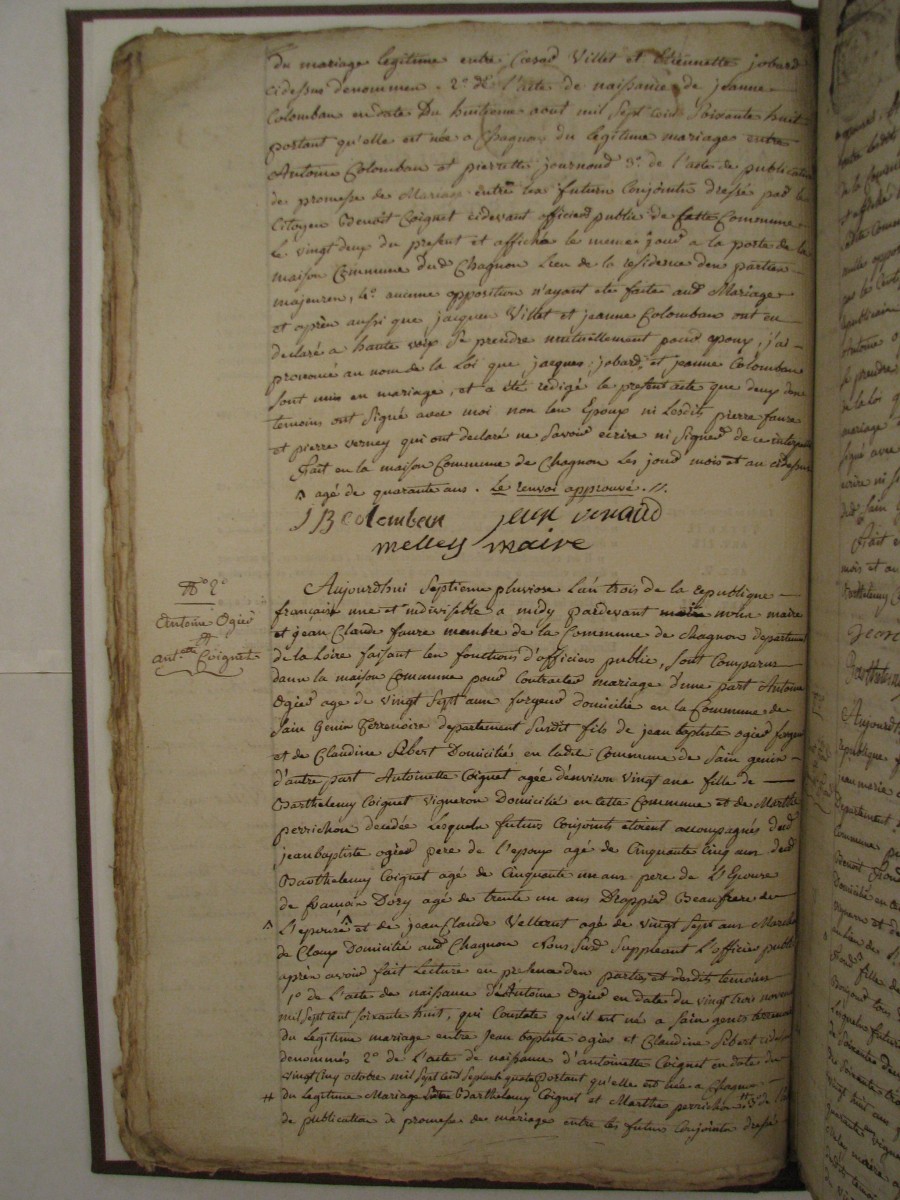 Du mariage legitime entre Cesard Villet et Etiennette jobard
cidessus denommen. 2o. de l'acte de naissance de jeanne
Colomban en date Du huitieme aout mil Sept Cent Soixante huit
portant qu'elle est née a Chagnon du legitime mariage entre
Antoine Colomban et pierrette journoud 3o. de l'acte de publication
de promesse de Mariage entre les futurs Conjoints dressé par le
Citoyen Benoit Coignet cidevant officier public de cette Commune
le vingt deux du present et affiché le meme jour a la porte de la
maison Commune dud Chagnon lieu de la residence den partien
majeuren, 4o. aucune opposition n'ayant eté faite aud Mariage
et aprèn aussi que jacquen Villet et jeanne Colomban ont eu
declaré a haute voix Se prendre mutuellement pour epoux, j'ai
prononcé au nom de la Loi que jacques jobard, et jeanne Colomban
sont unis en mariage, et a eté redigé le present acte que deux den
temoins ont Signé avec moi non len Epoux ni Lesdits pierre faure
et pierre verney qui ont declaré ne Savoir ecrire ni Signer de ce
Fait en la maison Commune de Chagnon Les jour mois et an cidessus
^ agé de quarante ans. Le renvoi approuvé.
J B colomban jean renaud
melley maire
No. 2o
Antoine Ogier
et
antte Coignet
Aujourdhui Septieme pluviose L'an trois de la republique
françaisse une et indivisible a midy pardevant maire
et jean Claude faure membre de la Commune de Chagnon departement
de la Loire faisant len fonctions d'officiers public, sont Comparus
dans la maison Commune pour Contracter mariage d'une part Antoine
Ogier age de vingt Sept ans forgeur domicilié en la Commune de
Sain Genin Terrenoire departement Surdit fils de jean baptiste ogier forgeur
et de Claudine Sibert Domiciliés en ladite Commune de Sain genin
d'autre part Antoinette Coignet agée d'environ vingt ans fille de
Barthelemy Coignet vigneron Domicilié en cette Commune et de Marthe
perrichon decedée Lesqueln futurs Conjoints etoient accompagnés dud
jean baptiste ogier pere de l'epoux agé de Cinquante Cinq ans dud
Barthelemy Coignet agé de Cinquante un ans pere de L'Epouse
de françois Dory agé de trente un ans Beaufrere de
^ L'epouse ^ et de jean Claude Vellerut agé de vingt Sept ans Marchand
de Cloux Domicilié aud Chagnon Nous Susd Suppleant L'officier public
aprèn avoir fait Lecture en presence den parties et desdits temoins
1o. de L'acte de naissance d'Antoine Ogier en date du vingt trois novembre
mil Sept cent soixante huit, qui Constate qu'il est né a Sain genis terrenoire
du Legitime mariage entre jean baptiste ogier et Claudine Sibert cidessus
denommés 2o. de L'acte de naissance d'antoinette Coignet en date du
vingt Cinq octobre mil Sept cent Septante quatre portant qu'elle est née a Chagnon
# du Legitime Mariage Entre Barthelemy Coignet et Marthe perrichon 3o. de l'acte
de publication de promesse de mariage entre les futur Conjoints dressé